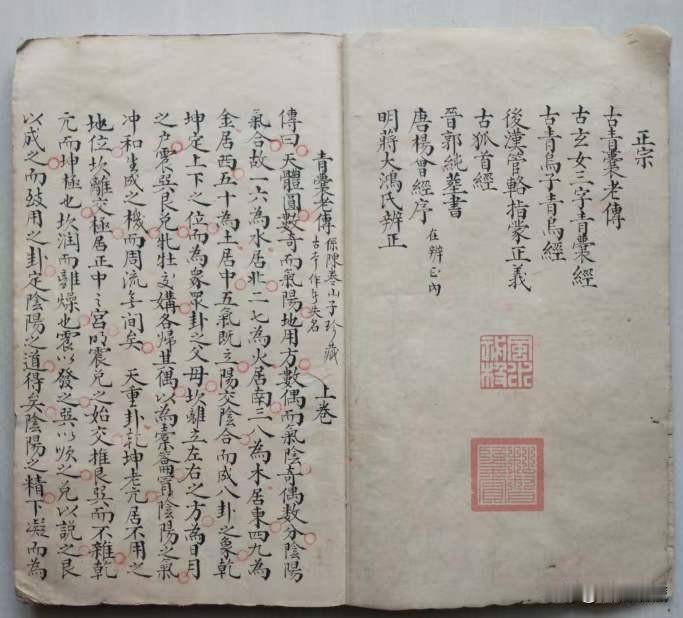 正宗
古青囊老傳
古玄女三字青囊經
古青烏子青烏經
後漢管輅指蒙正義
古狐首經
晉郭純葬書
唐楊曾經序 在辨正內
明蔣大鴻氏辨正
青囊老傳 係陳泰山子珍藏 古本作者失名 上卷
傳曰天體圓數奇而氣陽地用方數偶而氣陰奇偶數分陰陽
氣合故一六為水居北二七為火居南三八為木居東四九為
金居西五十為土居中五氣既立陽交陰合而成八卦之象乾
坤定上下之位而為眾卦之父母坎離立左右之方為日月
之户震巽艮兑牝牡交媾各歸其偶以為橐籥冒陰陽之氣
冲和生成之機而周流無间矣 天重卦乾坤老亢居不用之
地位坎離交極居正中之宮明震兑之始交推艮巽而不雜乾
亢而坤極也坎润而離燥也震以發之巽以順之兑以説之艮
以成之而歧用之卦定陰陽之道得矣陰陽之精下凝而為